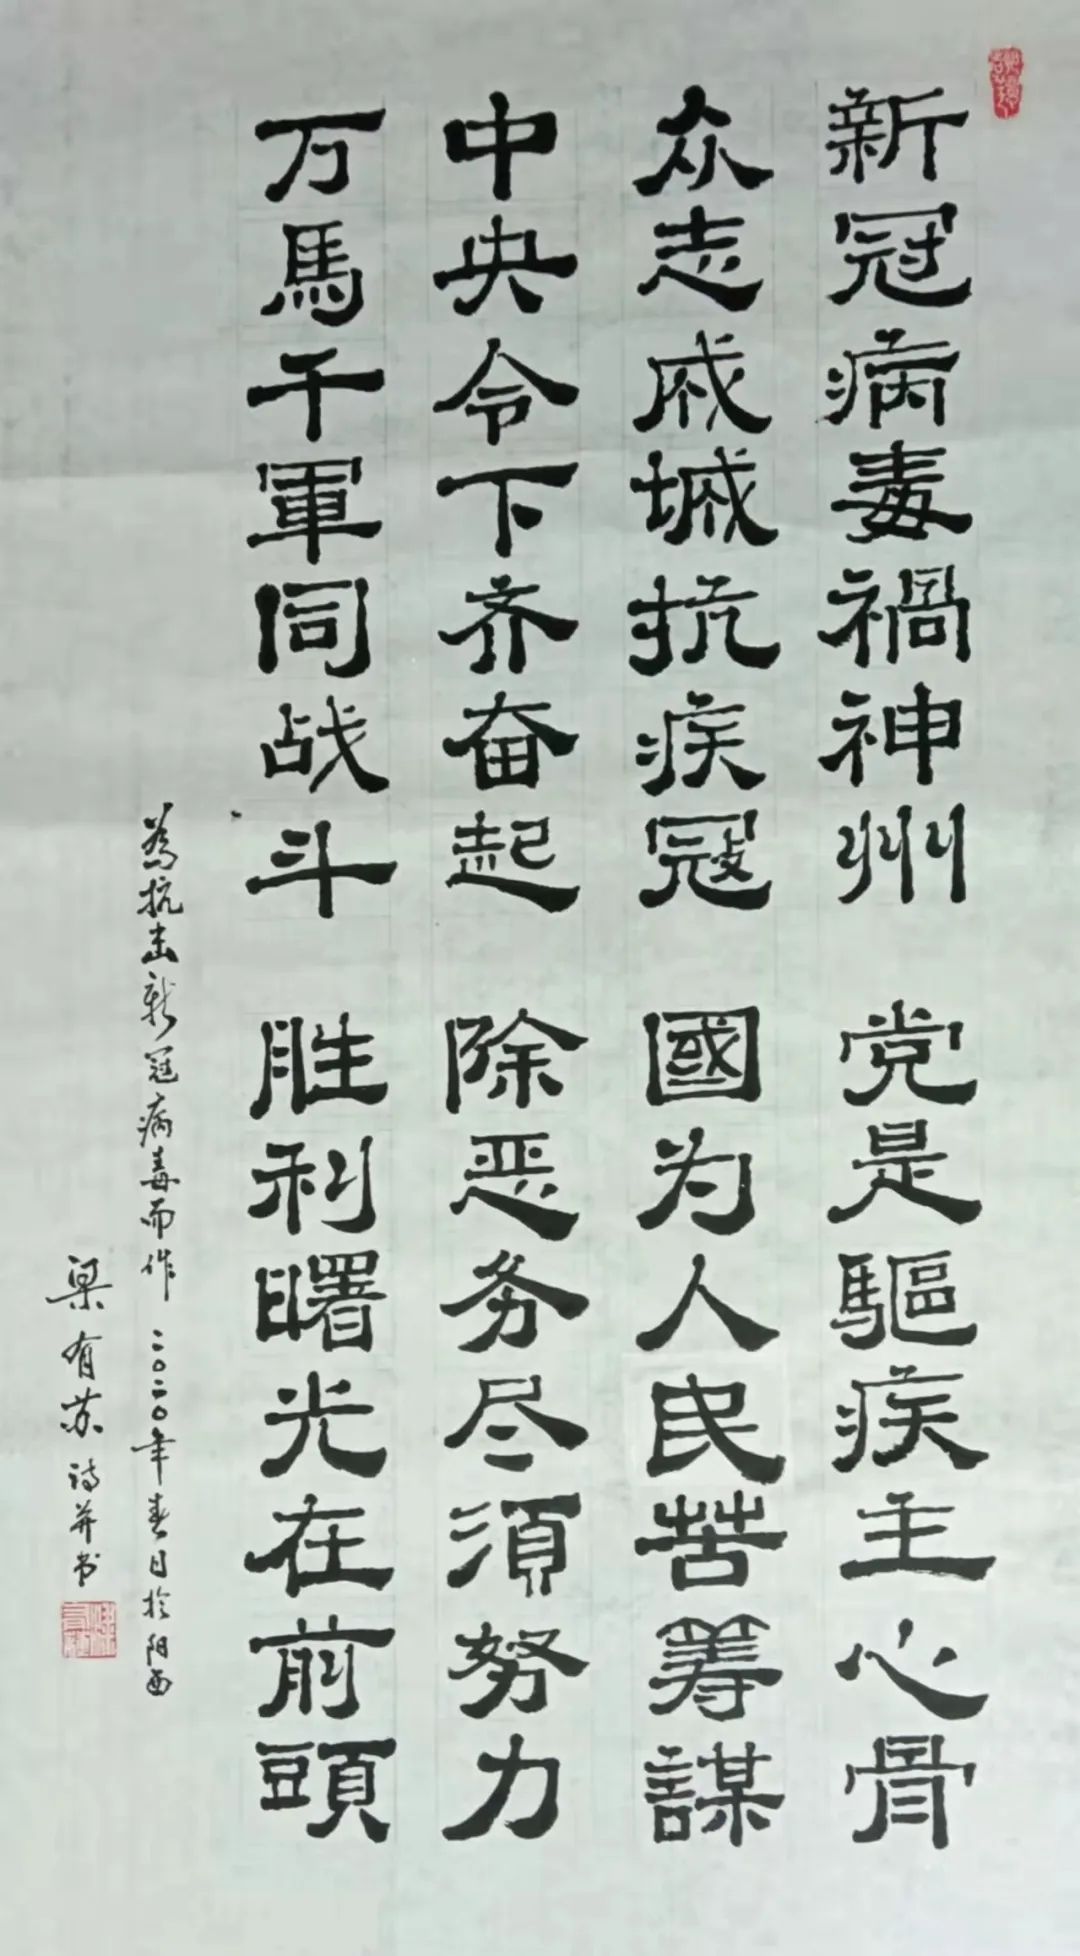 新冠病毒禍神州 党是驅疾主心骨
众志成城抗疾寇 國为人民苦筹謀
中央令下齐奋起 除恶务尽須努力
万馬千軍同战斗 胜利曙光在前頭
為抗击新冠病毒而作 二〇二〇年春日於阳西
梁有苏诗并书